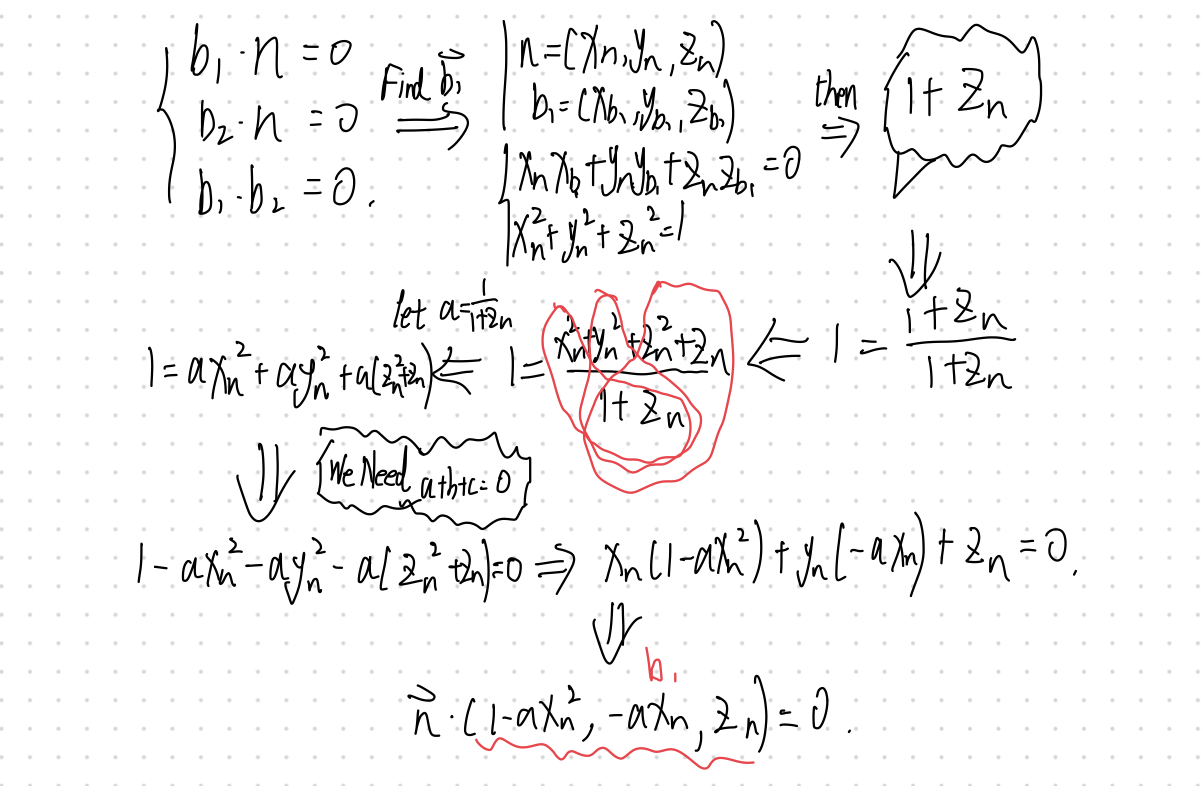 b₁ · n = 0
b₂ · n = 0
b₁ · b₂ = 0.
Find b⃗₁
⟹
n = (xₙ, yₙ, zₙ)
b₁ = (x_b₁, y_b₁, z_b₁)
xₙx_b₁ + yₙy_b₁ + zₙz_b₁ = 0
xₙ² + yₙ² + zₙ² = 1
then
⇒
1 + zₙ
⇓
1 = (1 + zₙ)/(1 + zₙ)
⇐
1 = (xₙ² + yₙ² + zₙ² + zₙ)/(1 + zₙ)
let a = 1/(1+zₙ)
⇐
1 = axₙ² + ayₙ² + a(zₙ² + zₙ)
⇓
We Need a+b+c = 0
1 - axₙ² - ayₙ² - a(zₙ² + zₙ) = 0 ⇒ xₙ(1 - axₙ²) + yₙ(-axₙ) + zₙ = 0.
⇓
b₁
n⃗ · (1 - axₙ², -axₙ, zₙ) = 0.